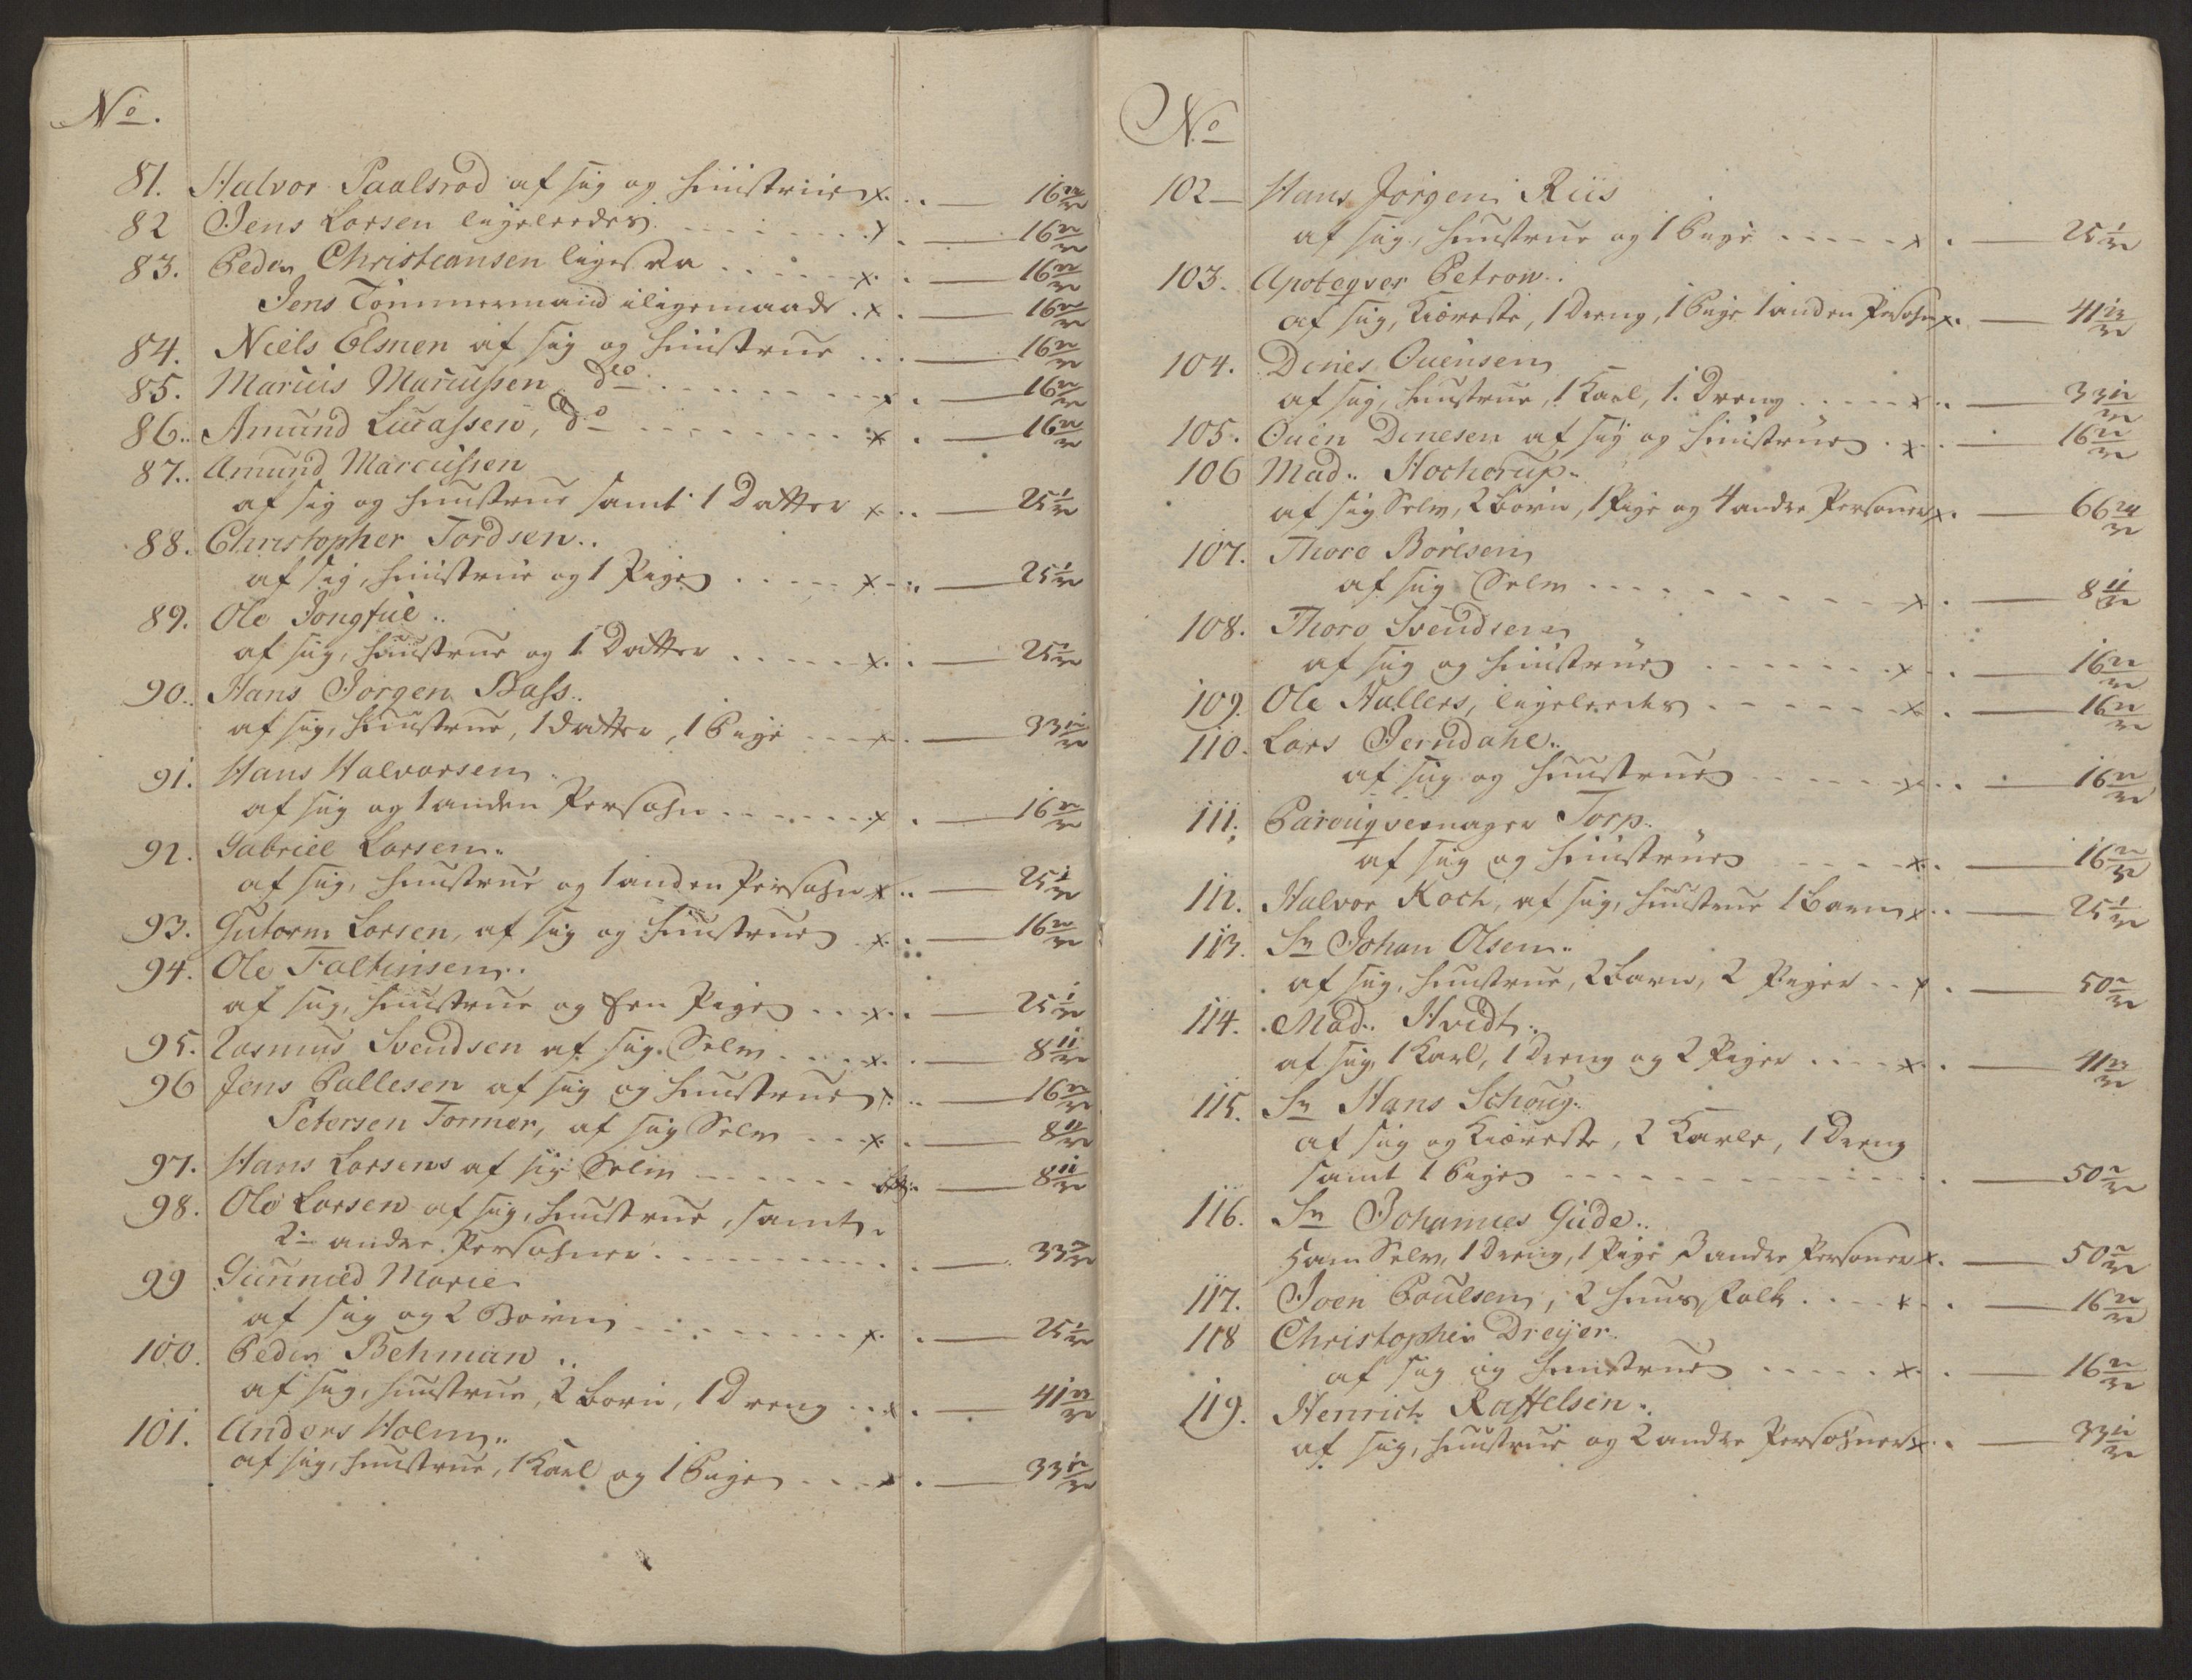 No.
81. Halvor Paalsrød af sig og Huustrue x. 16 22/32
82 Jens Larsen ligeleedes x. 16 22/32
83. Peder Christiansen ligesaa x. 16 22/32
Jens Tömmermand iligemaade x. 16 22/32
84. Niels Elsnen af sig og Huustrue 16 22/32
85. Marcus Marcussen, do x. 16 22/32
86. Amund Lucassen, do x. 16 22/32
87. Amund Marcussen
af sig og Huustrue samt 1 Datter x. 25 1/32
88. Christopher Tordsen
af sig, Huustrue og 1 Pige x. 25 1/32
89. Ole Jongfue
af sig, Huustrue og 1 Datter x. 25 1/32
90. Hans Jørgen Bass
af sig, Huustrue, 1 Datter, 1 Pige x. 33 12/32
91. Hans Halvorsen
af sig og 1 anden Persohn x. 16 22/32
92. Gabriel Larsen
af sig, Huustrue og 1 anden Persohn x. 25 1/32
93. Gutorm Larsen, af sig og Huustrue x. 16 22/32
94. Ole Faltinsen
af sig, Huustrue og Een Pige x. 25 1/32
95. Rasmus Svendsen af sig Selv x. 8 11/32
96 Jens Pallesen af sig og Huustrue x. 16 22/32
Petersen Tormer, af sig Selv x. 8 11/32
97. Hans Larsens af sig Selv 8 11/32
98. Ole Larsen af sig, Huustrue, samt
2 andre Persohner 33 12/32
99 Gunnild Marie
af sig og 2 Børn x. 25 1/32
100. Peder Behman
af sig, Huustrue, 2 børn, 1 Dreng x. 41 23/32
101. Anders Holm
af sig, Huustrue, 1 Karl og 1 Pige x. 33 12/32
No
102 Hans Jørgen Riis
af sig, Huustrue og 1 Pige x. 25 1/32
103. Apoteqver Petrow
af sig, Kiæreste, 1 Dreng, 1 Pige 1 anden Persohn x. 41 23/32
104. Dines Ouensen
af sig, Huustrue, 1 Karl, 1 Dreng x. 33 12/32
105. Ouen Dinesen af sig og Huustrue x. 16 22/32
106 Mad. Hocherup
af sig Selv, 2 børn, 1 Pige og 4 andre Personer x. 66 24/32
107. Thore Borlsen
af sig Selv x. 8 11/32
108. Thoro Svendsen
af sig og Huustrue x. 16 22/32
109. Ole Hallers, ligeleedes x. 16 22/32
110. Lars Jerndahl
af sig og Huustrue x. 16 22/32
111. Paruuqvemager Torp
af sig og Huustrue x. 16 22/32
112. Halvor Koch, af sig, Huustrue 1 Barn x. 25 1/32
113. Sr Johan Olsen
af sig, Huustrue, 2 børn, 2 Piger x. 50 2/32
114. Mad. Hvidt
af sig, 1 Karl, 1 Dreng og 2 Piger x. 41 23/32
115. Sr Hans Schoug
af sig og Kiæreste, 2 Karle, 1 Dreng
samt 1 Pige 50 2/32
116. Sr Johannes Gude
Ham Selv, 1 Dreng, 1 Pige 3 andre Personer x. 50 2/32
117. Joen Poulsen, 2 Huus Folk x. 16 22/32
118 Christopher Dreyer
af sig og Huustrue x. 16 22/32
119. Henrich Raffelsen
af sig, Huustrue og 2 andre Persohner x. 33 12/32